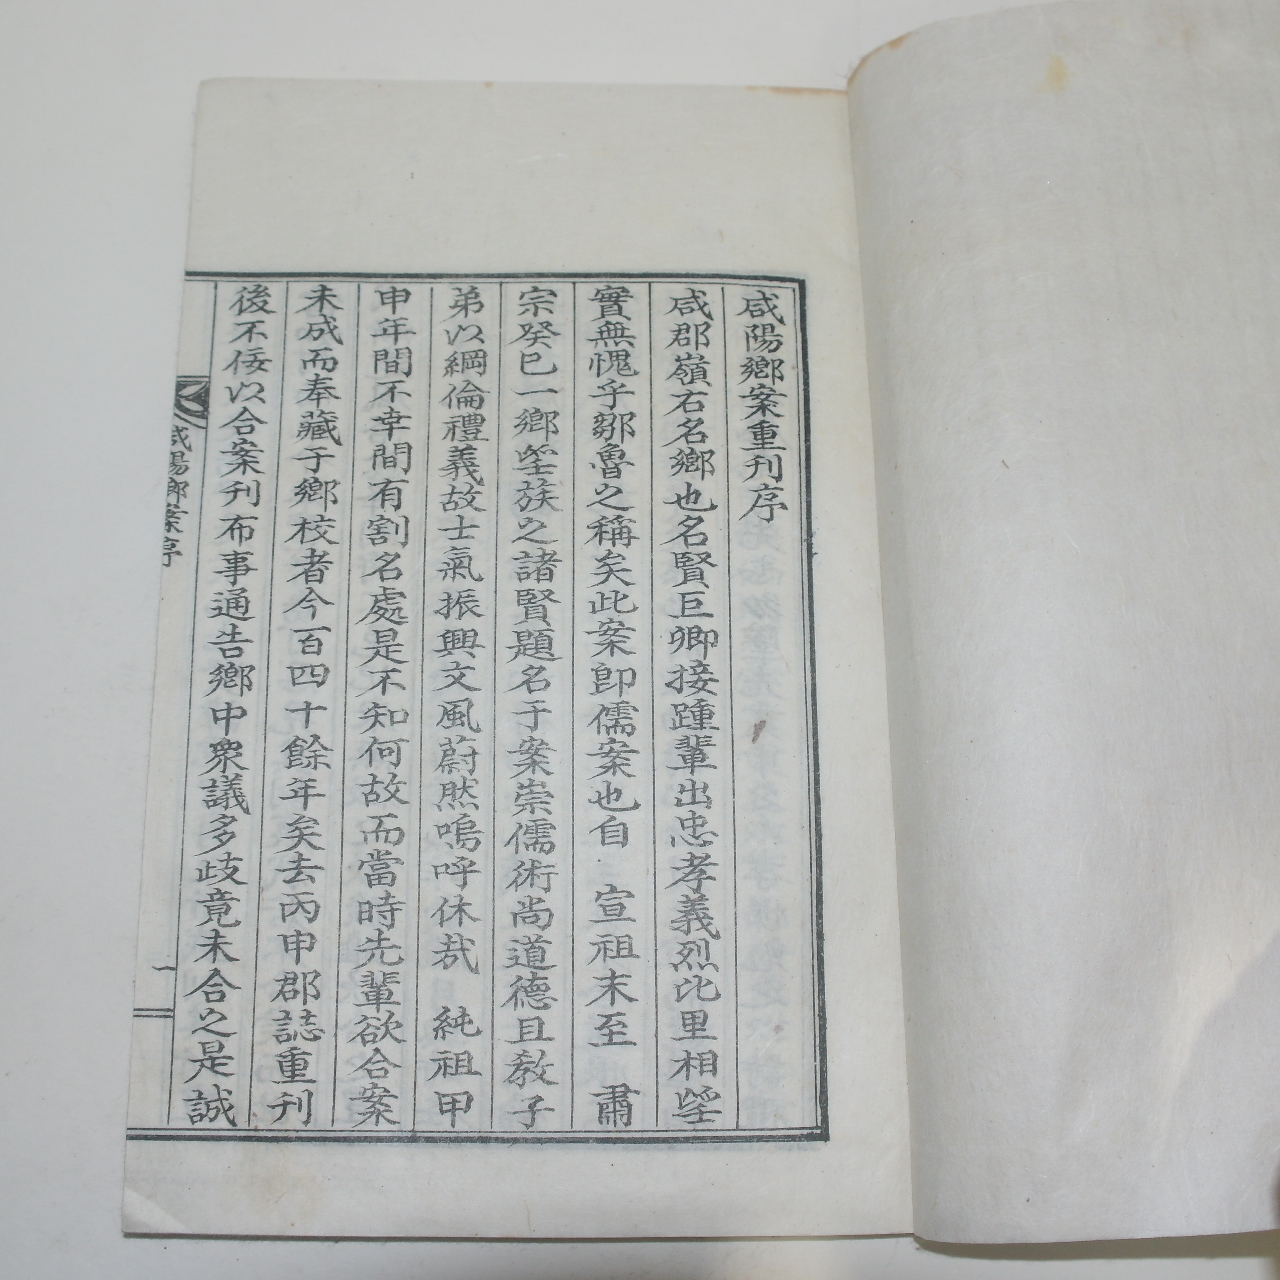 咸陽鄕案重刊序
咸郡嶺右名鄕也名賢巨卿接踵輩出忠孝義烈比里相望
實無愧乎鄒魯之稱矣此案卽儒案也自 宣祖末至 肅
宗癸巳一鄕望族之諸賢題名于案崇儒術尙道德且敎子
弟以綱倫禮義故士氣振興文風蔚然嗚呼休哉 純祖甲
申年間不幸間有割名處是不知何故而當時先輩欲合案
未成而奉藏于鄕校者今百四十餘年矣去丙申郡誌重刊
後不佞以合案刊布事通告鄕中衆議多歧竟未合之是誠
咸陽鄕案序
一